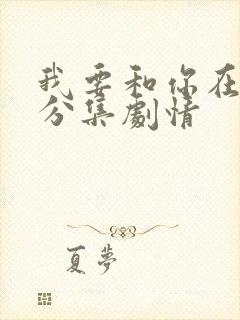 我要和你在
分集劇情
夏夢